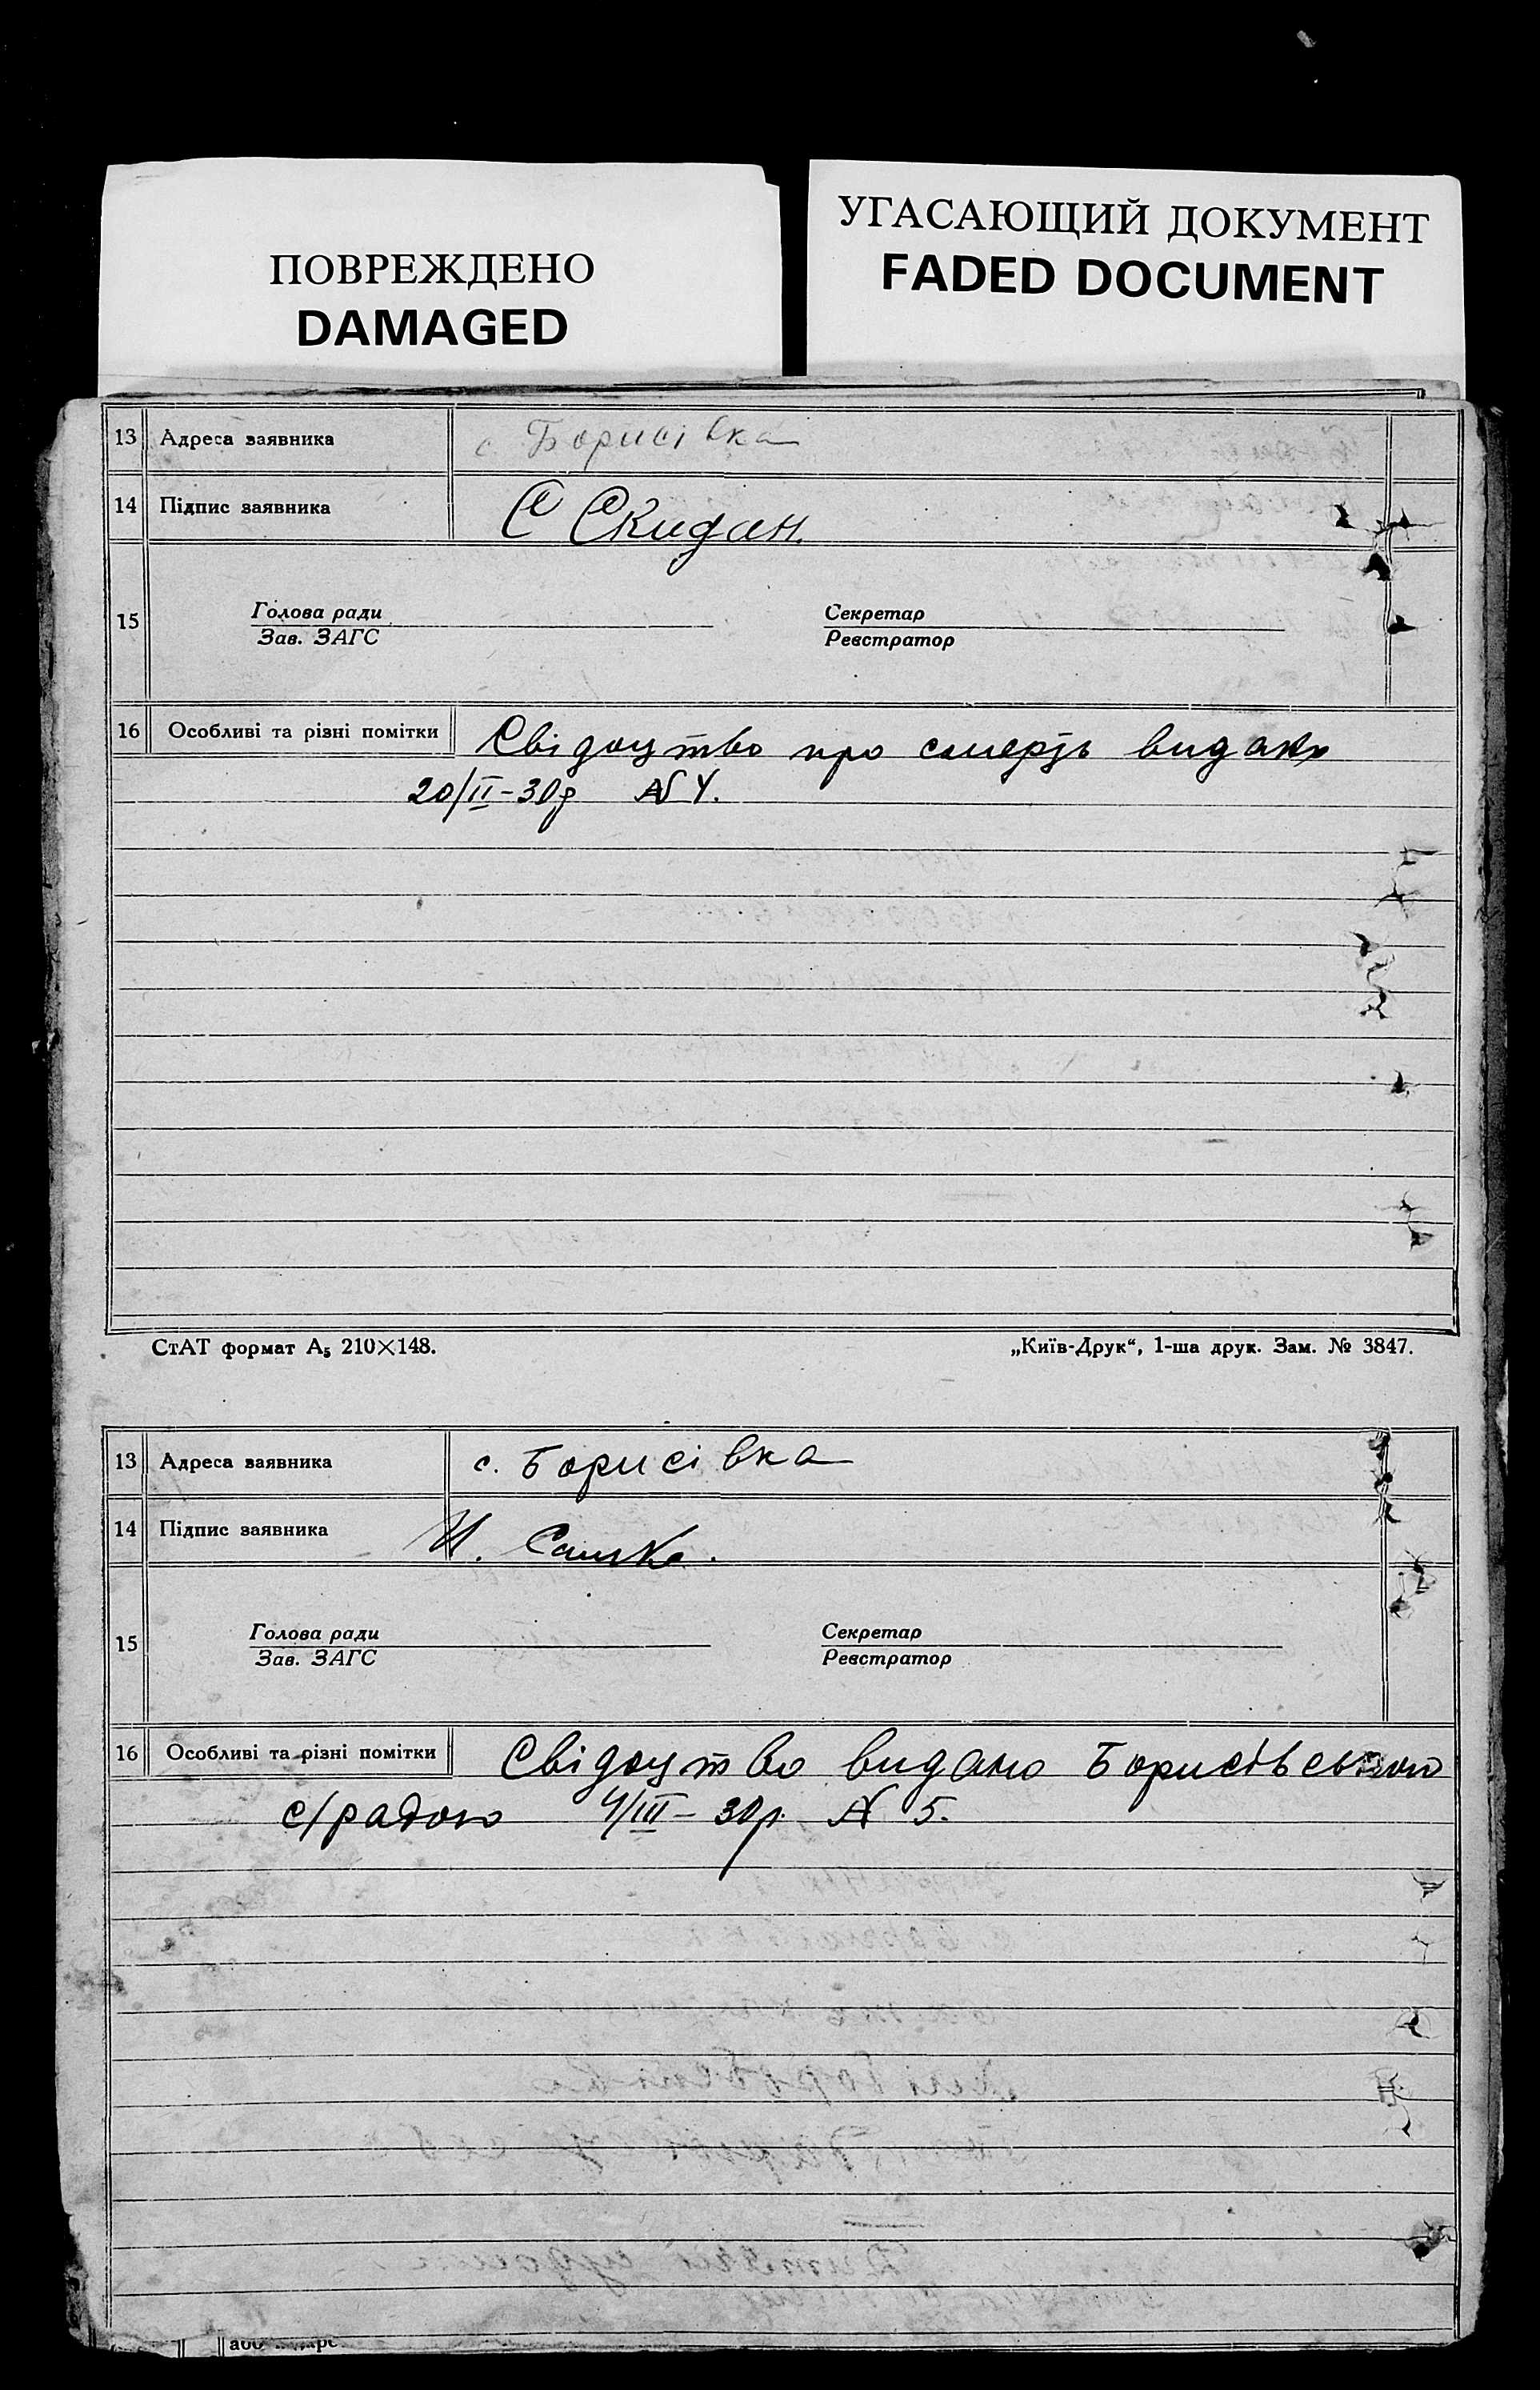 ПОВРЕЖДЕНО
DAMAGED
УГАСАЮЩИЙ ДОКУМЕНТ
FADED DOCUMENT
13 Адреса заявника с. Борисівка
14 Підпис заявника С Скидан.
15 Голова ради Секретар
Зав. ЗАГС Реєстратор
16 Особливі та різні помітки Свідоцтво про смерть видано
20/II-30р № 4.
СтАТ формат А₅ 210×148. „Київ-Друк“, 1-ша друк. Зам. № 3847.
13 Адреса заявника с. Борисівка
14 Підпис заявника И.
15 Голова ради Секретар
Зав. ЗАГС Реєстратор
16 Особливі та різні помітки Свідоцтво видано Борисівською
с/радою 4/III-30р. № 5.
або